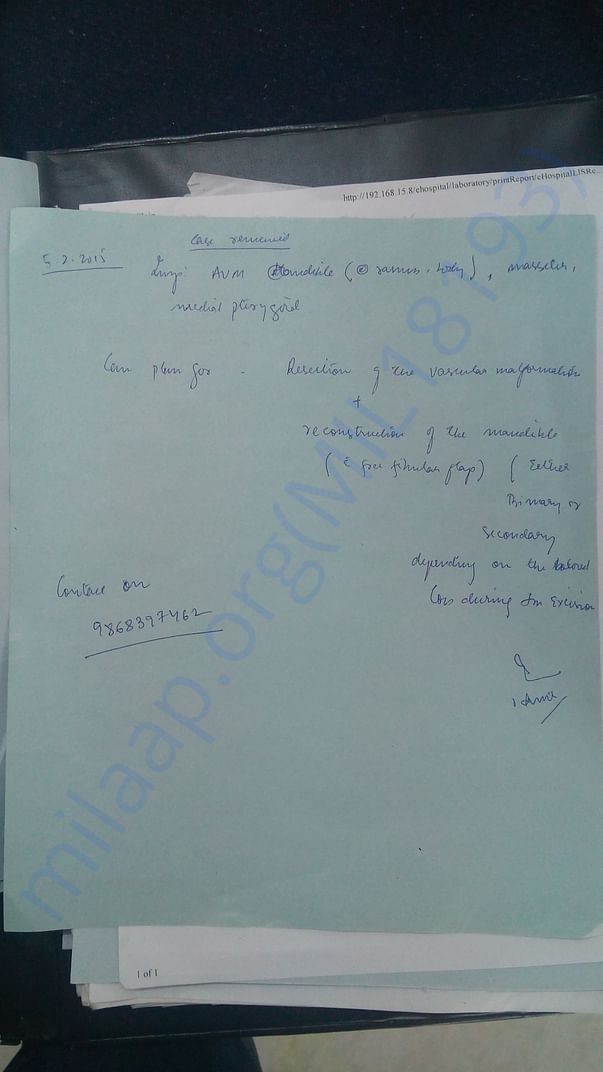 http://192.168.15.8/ehospital/laboratory/printReport/eHospitalLISRe...
Case reviewed
5.2.2015
AVM Mandible (ramus, body), masseter,
medial pterygoid
Can plan for - Resection of the vascular malformation
+
reconstruction of the mandible
(c free fibular flap) (Either
Primary or
Secondary
depending on the blood
loss during the Excision
Contact on
9868397462
1 of 1
milaap.org(MIL18193)